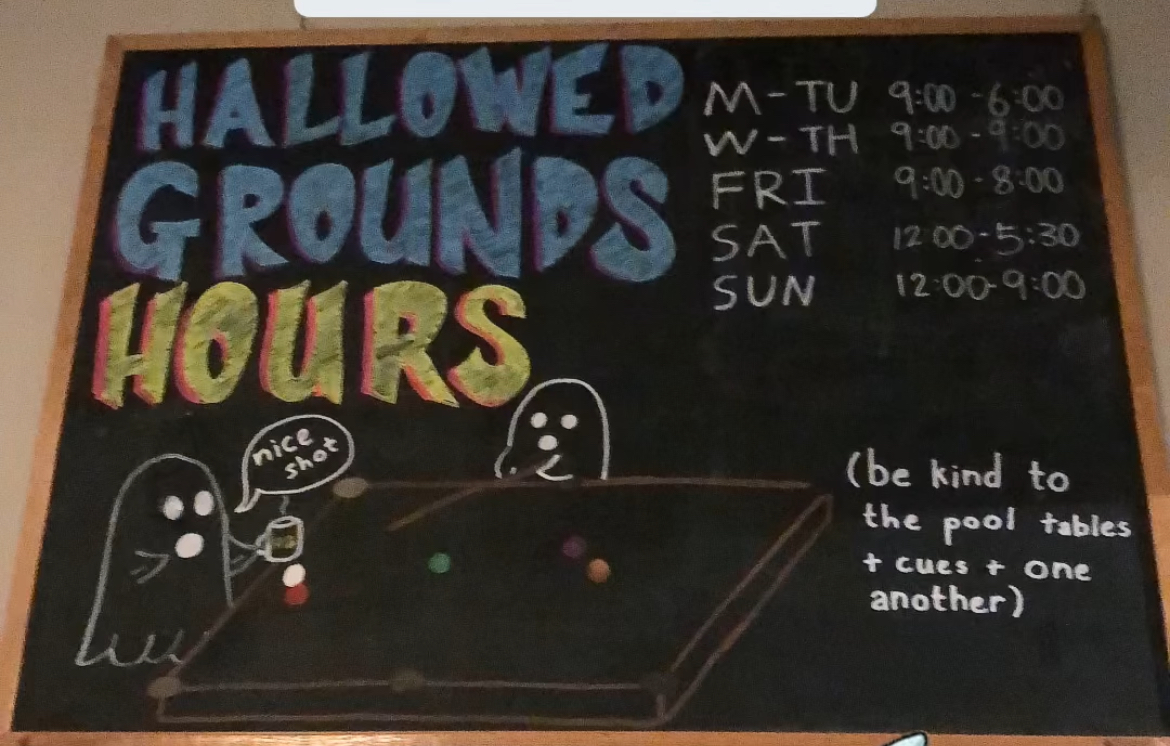 HALLOWED
GROUNDS
HOURS
M-TU 9:00-6:00
W-TH 9:00-9:00
FRI 9:00-8:00
SAT 12:00-5:30
SUN 12:00-9:00
nice
shot
(be kind to
the pool tables
+ cues + one
another)